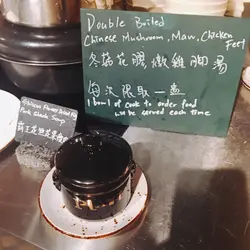 Double Boiled
Chinese Mushroom, Maw, Chicken Feet
冬菇花膠燉雞腳湯
每次限取一盅
1 bowl of cook to order food
will be served each time
Pork Shank Soup